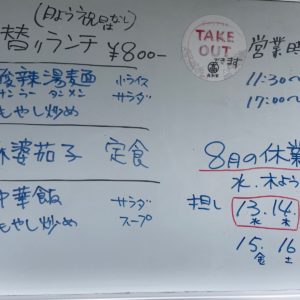 (日よう祝日はなし)
替りランチ ¥800-
酸辣湯麺 小ライス
サンラータンメン サラダ
もやし炒め
麻婆茄子 定食
中華飯 サラダ
もやし炒め スープ
TAKE
OUT
できます
営業時
11:30～
17:00～
8月の休業
水.木よう
担し 13. 14.
水 木
15. 16
金 土